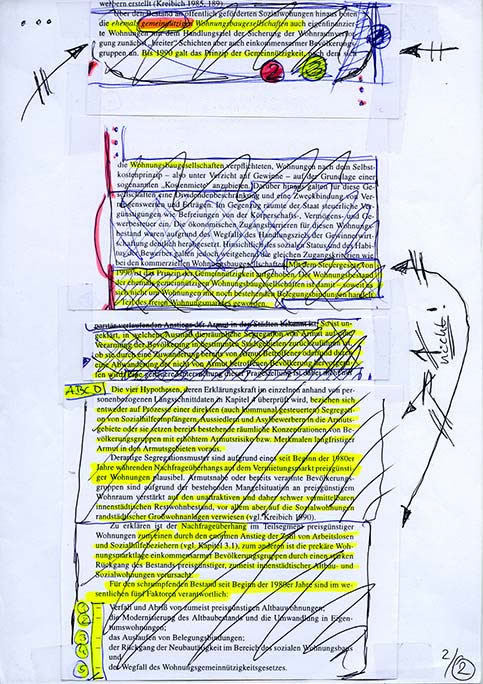 werbern erstellt (Kreibich 1985, 189).
Über den Bestand an öffentlich geförderten Sozialwohnungen hinaus boten
die ehemals gemeinnützigen Wohnungsbaugesellschaften auch eigenfinanzier-
te Wohnungen mit dem Handlungsziel der Sicherung der Wohnraumversor-
gung zunächst „breiter“ Schichten aber auch einkommensarmer Bevölkerungs-
gruppen an. Bis 1990 galt das Prinzip der Gemeinnützigkeit, nach dem sich
2
3
die Wohnungsbaugesellschaften verpflichteten, Wohnungen nach dem Selbst-
kostenprinzip – also unter Verzicht auf Gewinne – auf der Grundlage einer
sogenannten „Kostenmiete“ anzubieten. Darüber hinaus galten für diese Ge-
sellschaften eine Dividendenbeschränkung und eine Zweckbindung von Ver-
mögenswerten und Erträgen. Im Gegenzug räumte der Staat steuerliche Ver-
günstigungen wie Befreiungen von der Körperschafts-, Vermögens- und Ge-
werbesteuer ein. Die ökonomischen Zugangsbarrieren für diesen Wohnungs-
bestand waren aufgrund des Wegfalls des Handlungsziels der Gewinnerwirt-
schaftung deutlich herabgesetzt. Hinsichtlich des sozialen Status und des Habi-
tus der Bewerber galten jedoch weitgehend die gleichen Zugangskriterien wie
bei den kommerziellen Wohnungsbaugesellschaften. Mit dem Steuergesetz von
1990 ist das Prinzip der Gemeinnützigkeit aufgehoben. Der Wohnungsbestand
der ehemals gemeinnützigen Wohnungsbaugesellschaften ist damit – soweit es
sich nicht um Wohnungen mit noch bestehenden Belegungsbindungen handelt –
Teil des freien Wohnungsmarktes geworden.
nicht!
verlaufenden Anstiegs der Armut in den Städten bekannt ist. Sonst un-
geklärt, in welchem
Verarmung der Bevölkerung in bestimmten Stadtgebieten zurückzuführen
ob sie durch eine Zuwanderung bereits von Armut Betroffener oder/und durch
eine Abwanderung der nicht von Armut betroffenen Bevölkerung
ABCD
Die vier Hypothesen, deren Erklärungskraft im einzelnen anhand von per-
sonenbezogenen Längsschnittdaten in Kapitel 4 überprüft wird, beziehen sich
entweder auf Prozesse einer direkten (auch kommunal gesteuerten) Segregation
von Sozialhilfeempfängern, Aussiedlern und Asylbewerbern in die Armuts-
gebiete oder sie sitzen bereits bestehende räumliche Konzentrationen von Be-
völkerungsgruppen mit erhöhtem Armutsrisiko bzw. Merkmalen langfristiger
Armut in den Armutsgebieten voraus.
Derartige Segregationsmuster sind aufgrund eines seit Beginn der 1980er
Jahre währenden Nachfrageüberhangs auf dem Vermietungsmarkt preisgünsti-
ger Wohnungen plausibel. Armutsnahe oder bereits verarmte Bevölkerungs-
gruppen sind aufgrund der bestehenden Mangelsituation an preisgünstigem
Wohnraum verstärkt auf den unattraktiven und daher schwer vermittelbaren
innenstädtischen Restwohnbestand, vor allem aber auf die Sozialwohnungen
randstädtischer Großwohnanlagen verwiesen (vgl. Kreibich 1990).
Zu erklären ist der Nachfrageüberhang im Teilsegment preisgünstiger
Wohnungen zum einen durch den enormen Anstieg der Zahl von Arbeitslosen
und Sozialhilfebeziehern (vgl. Kapitel 3.1), zum anderen ist die prekäre Woh-
nungsmarktlage einkommensarmer Bevölkerungsgruppen durch einen starken
Rückgang des Bestands preisgünstiger, zumeist innenstädtischer Altbau- und
Sozialwohnungen verursacht.
Für den schrumpfenden Bestand seit Beginn der 1980er Jahre sind im we-
sentlichen fünf Faktoren verantwortlich:
1 – Verfall und Abriß von zumeist preisgünstigen Altbauwohnungen;
2 – die Modernisierung des Altbaubestands und die Umwandlung in Eigen-
tumswohnungen;
3 – das Auslaufen von Belegungsbindungen;
4 – der Rückgang der Neubautätigkeit im Bereich des sozialen Wohnungsbaus
und
5 – der Wegfall des Wohnungsgemeinnützigkeitsgesetzes.
2/2